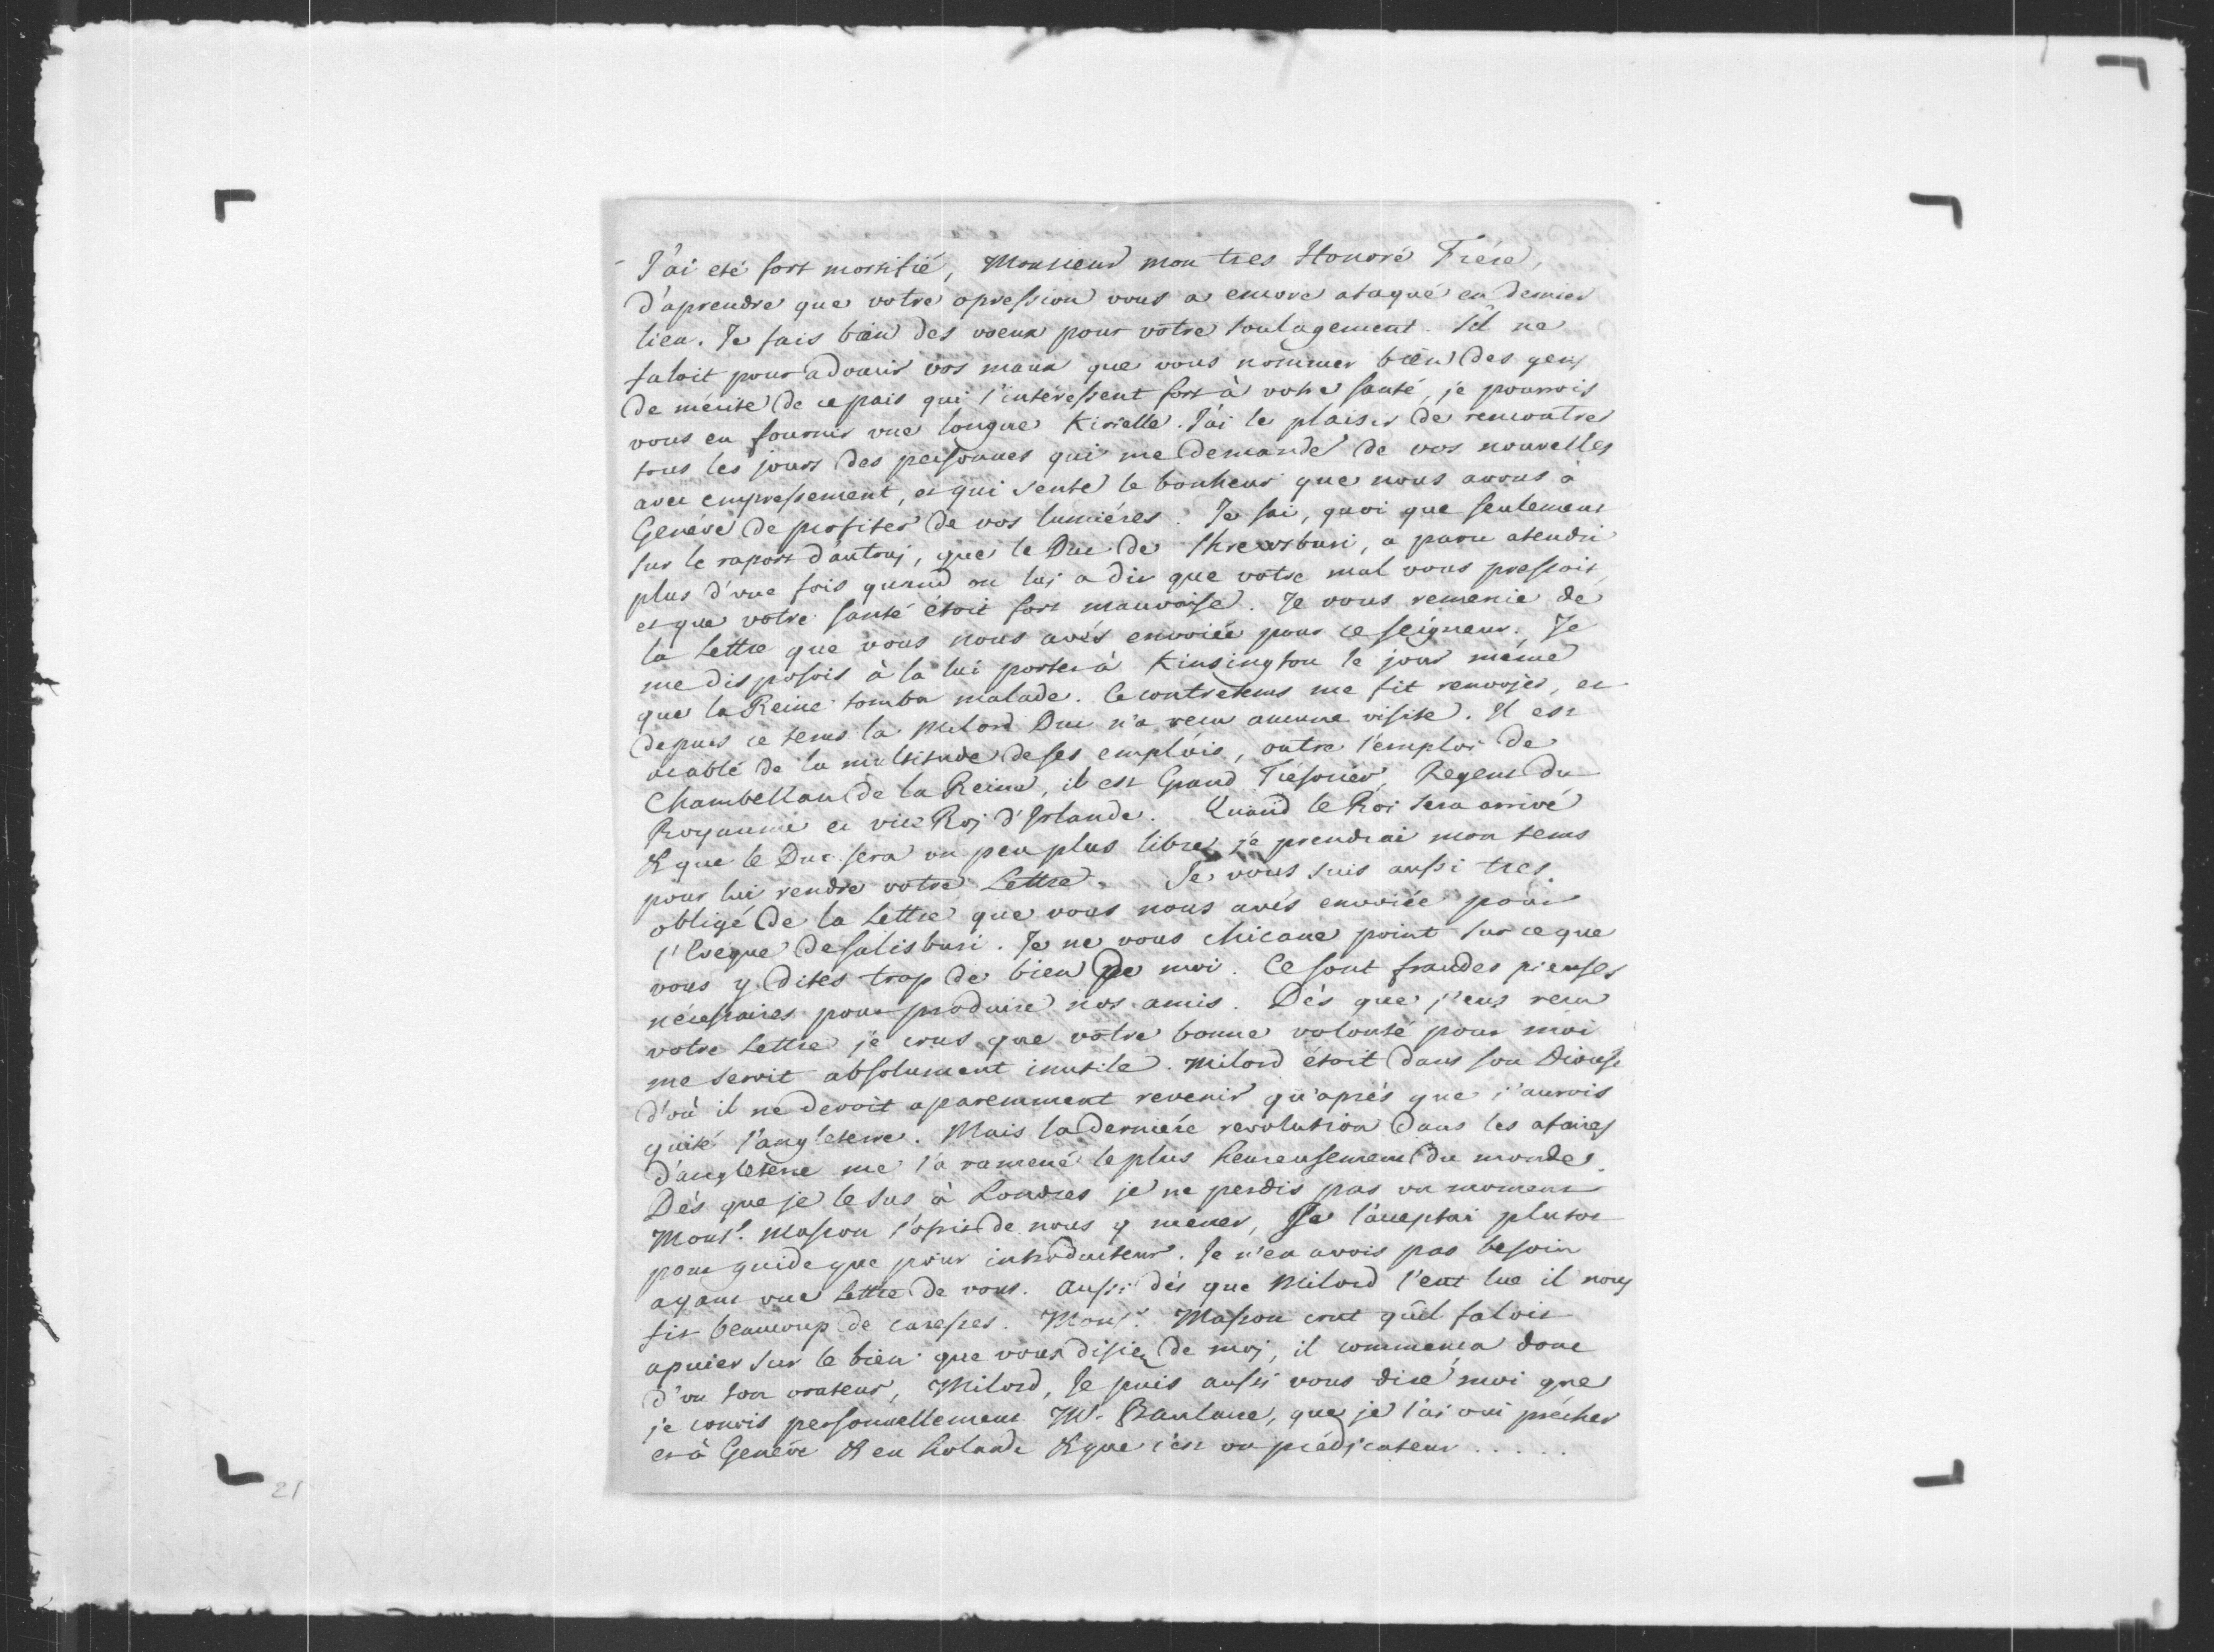 J'ai eté fort mortifié, Monsieur mon tres Honoré Frére,
d'aprendre que votre opression vous a encore ataqué en dernier
lieu. Je fais bien des voeux pour vôtre soulagement. S'il ne
faloit pour adoucir vos maux que vous nommer bien des gens
de mérite de ce païs qui s'intéressent fort à votre santé, je pourrois
vous en fournir une longue Kirielle. J'ai le plaisir de rencontrer
tous les jours des personnes qui me demande de vos nouvelles
avec empressement, et qui sente le bonheur que nous avons à
Genéve de profiter de vos lumiéres. Je sai, quoi que seulement
sur le raport d'autruj, que le Duc de Shrewsburi, a paru atendri
plus d'une fois quand on luj a dit que votre mal vous pressoit,
et que votre santé étoit fort mauvaise. Je vous remercie de
la Lettre que vous nous avés envoiée pour ce seigneur. Je
me disposois à la lui porter à Kinsington le jour même
que la Reine tomba malade. Ce contretems me fit renvojer, et
depuis ce tems la Milord Duc n'a recu aucune visite. Il est
acablé de la multitude de ses emplois, outre l'emploi de
Chambellan de la Reine, il est Grand Trésorier, Regent du
Royaume et vice Roj d'Irlande. Quand le Roi sera arrivé
& que le Duc sera un peu plus libre, je prendrai mon tems
pour lui rendre votre Lettre. Je vous suis aussi tres
obligé de la Lettre que vous nous avés envoiée pour
l'Eveque de Salisburi. Je ne vous chicane point sur ce que
vous y dites trop de bien de moi. Ce sont fraudes pieuses
nécessaires pour produire nos amis. Dés que j'eus recu
votre Lettre je crus que vôtre bonne volonté pour moi
me seroit absolument inutile. Milord étoit dans son Diocése
d'où il ne devoit aparemment revenir qu'aprés que j'aurois
quité l'angleterre. Mais la derniére revolution dans les afaires
d'angleterre me l'a ramené le plus heureusement du monde.
Dés que je le sus à Londres je ne perdis pas un moment
Mons.r Masson s'ofrit de nous y mener, Je l'acceptai plutot
pour guide que pour introducteur. Je n'en avois pas besoin
ayant une Lettre de vous. Aussi dés que Milord l'eut lue il nous
fit beaucoup de caresses. Mons.r Masson crut qu'il faloit
apuier sur le bien que vous disiez de moj, il commença donc
d'un ton orateur, Milord, Je puis aussi vous dire moi que
je conois personnellement Mr. Baulacre, que je l'ai oui prêcher
et à Genêve & en Holande & que c'est un prédicateur . . . . .
21